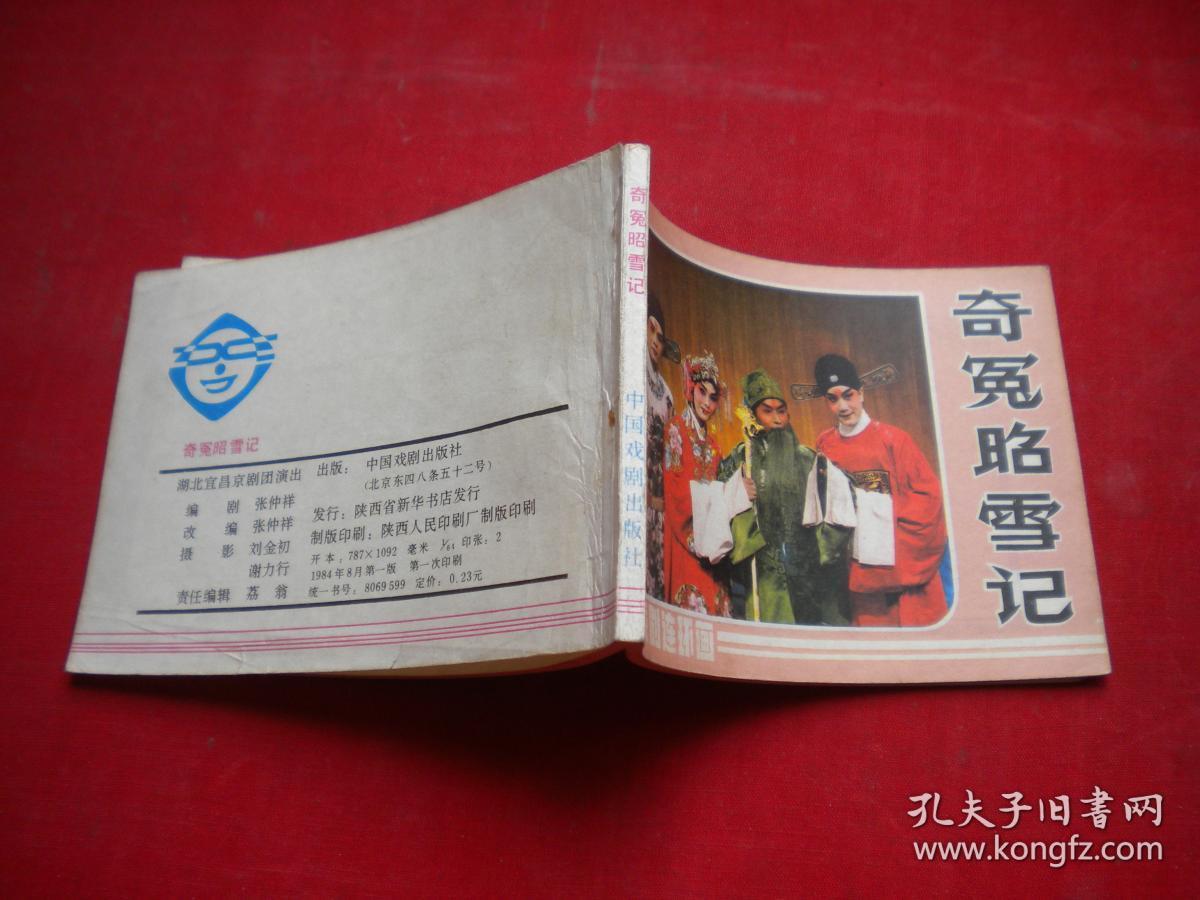 奇冤昭雪记
中国戏剧出版社
奇冤昭雪记
连环画
奇冤昭雪记
湖北宜昌京剧团演出
编 剧 张仲祥
改 编 张仲祥
摄 影 刘金初
谢力行
责任编辑 荔 翁
出版： 中国戏剧出版社
（北京东四八条五十二号）
发行：陕西省新华书店发行
制版印刷：陕西人民印刷厂制版印刷
开本：787×1092 毫米 1/64 印张：2
1984年8月第一版 第一次印刷
统一书号：8069599 定价：0.23元
孔夫子旧书网
www.kongfz.com